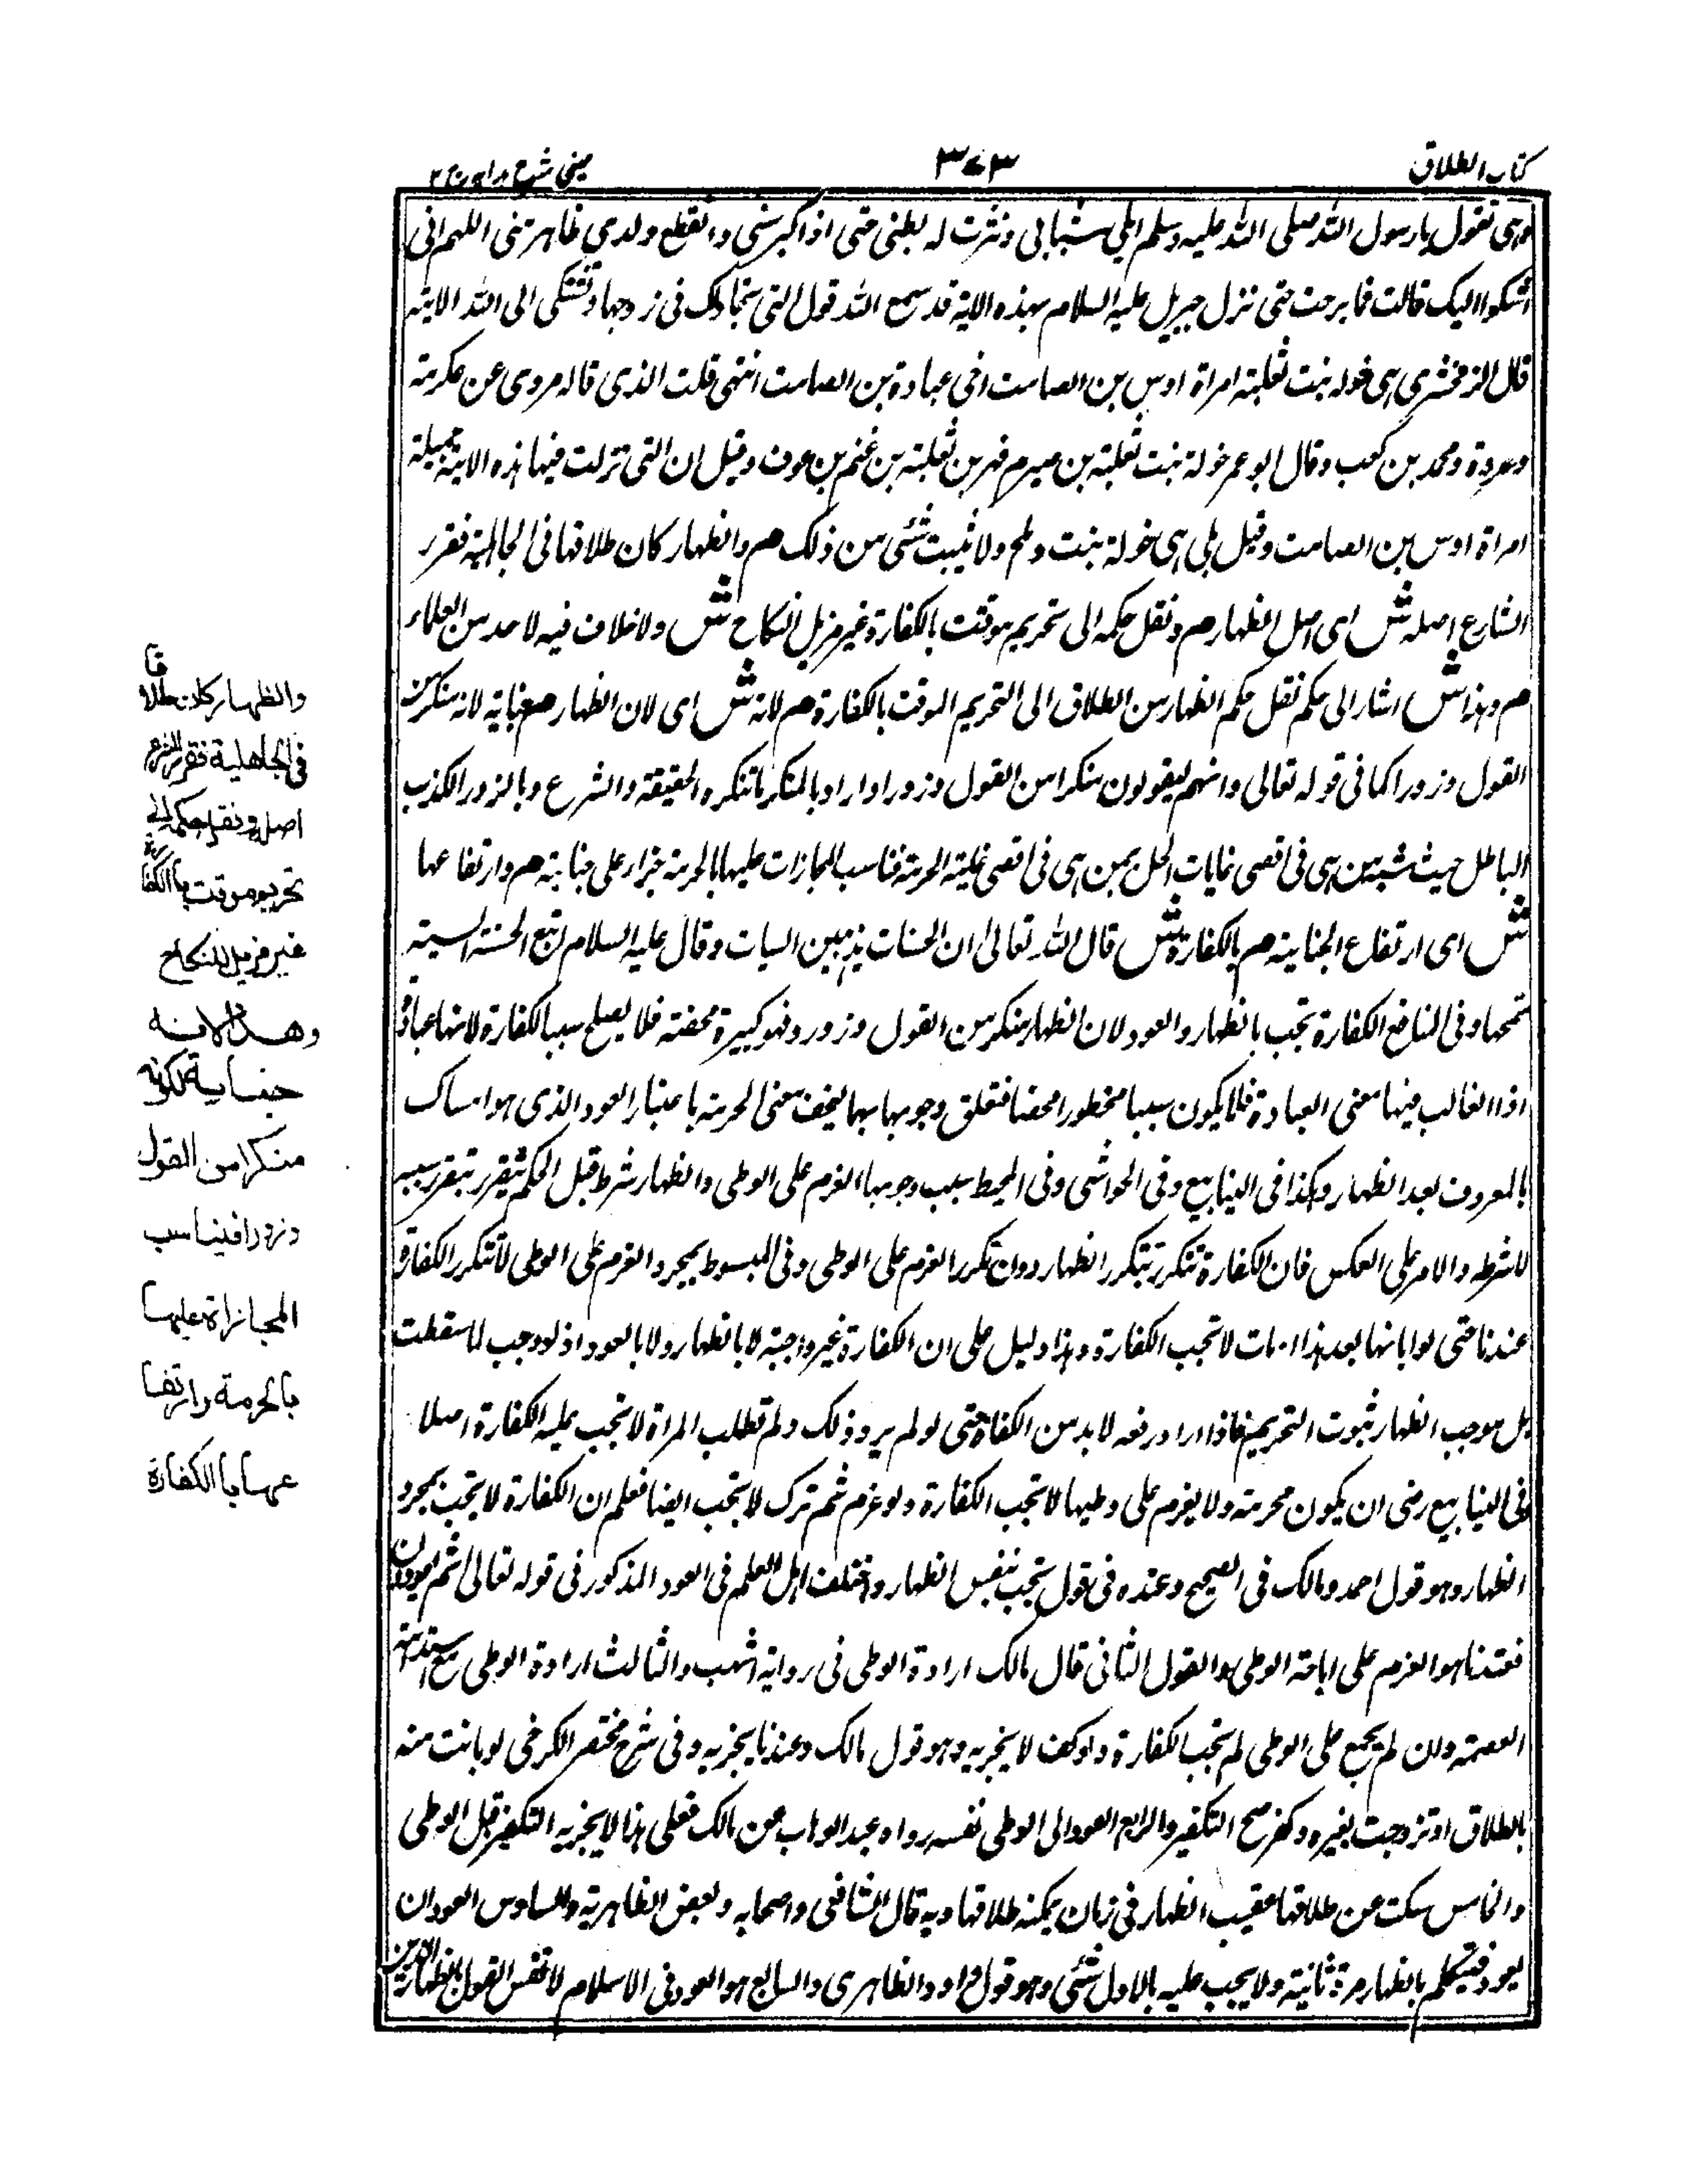 كتاب الطلاق
٣٧٣
عينى شرح هدايه ج ٢
وهى تقول يا رسول الله صلى الله عليه وسلم ابلى شبابى ونثرت له بطنى حتى اذا كبر سنى وانقطع ولدى ظاهر منى اللهم انى
اشكوا اليك قالت فما برحت حتى نزل جبريل عليه السلام بهذه الاية قد سمع الله قول التى تجادلك فى زوجها وتشتكى الى الله الاية
قال الزمخشرى هى خولة بنت ثعلبة امراة اوس بن الصامت اخى عبادة بن الصامت انتهى قلت الذى قاله مروى عن عكرمة
وعروة ومحمد بن كعب وقال ابو عمر خولة بنت ثعلبة بن فهر بن ثعلبة بن غنم بن عوف وقيل ان التى نزلت فيها هذه الاية جميلة
امراة اوس بن الصامت وقيل بلى هى خولة بنت دلج ولا يثبت شئى من ذلك هم والظهار كان طلاقا فى الجاهلية فقرر
الشارع اصله ش اى اصل الظهار هم ونقل حكمه الى تحريم موقت بالكفارة غير مزيل للنكاح ش ولا خلاف فيه لاحد من العلماء
هم وهذا ش اشار الى حكم نقل حكم الظهار من الطلاق الى التحريم الموقت بالكفارة هم لانه ش اى لان الظهار هم جناية لانه منكر من
القول وزورا كما فى قوله تعالى وانهم ليقولون منكرا من القول وزورا واراد بالمنكر ما تنكره الحقيقة والشرع وبالزور الكذب
الباطل حيث شبه من هى فى اقصى غايات الحل بمن هى فى اقصى غاية الحرمة فناسب المجازات عليها بالحرمة جزاء على جنايته هم وارتفاعها
ش اى ارتفاع الجناية هم بالكفارة ش قال الله تعالى ان الحسنات يذهبن السيات وقال عليه السلام اتبع الحسنة السيئة
تمحها وفى النافع الكفارة تجب بالظهار والعود لان الظهار منكر من القول وزور وفهو كبيرة محضة فلا يصلح سببا لكفارة لانها عبادة
اذ الغالب فيها معنى العبادة فلا يكون سببا محظورا محضا فتعلق وجوبها بهما ليخف معنى الحرمة باعتبار العود الذى هو امساك
بالمعروف بعد الظهار وهكذا فى الينابيع وفى الحواشى وفى المحيط سبب وجوبها العزم على الوطى والظهار شرط قبل الحكم يتقرر بتقرر سببه
لا شرطه والامر على العكس فان الكفارة تتكرر بتكرر الظهار دون تكرر العزم على الوطى وفى المبسوط بمجرد العزم على الوطى لا تتكرر الكفارة
عندنا حتى لو ابانها بعد هذا او مات لا تجب الكفارة وهذا دليل على ان الكفارة غير واجبة لا بالظهار ولا بالعود اذ لو وجب لما سقطت
بل موجب الظهار ثبوت التحريم فاذا اراد رفعه لا بد من الكفارة حتى لو لم يرد ذلك ولم تطلب المراة لا تجب عليه الكفارة اصلا
فى الينابيع رضى ان يكون محرمة ولا يعزم على وطيها لا تجب الكفارة ولو عزم ثم ترك لا تجب ايضا فعلم ان الكفارة لا تجب بمجرد
الظهار وهو قول احمد ومالك فى الصحيح وعنده فى قول تجب بنفس الظهار واختلف اهل العلم فى العود المذكور فى قوله تعالى ثم يعودون
فعندنا هو العزم على اباحة الوطى والقول الثانى قال مالك ارادة الوطى فى رواية اشهب والثالث ارادة الوطى مع استدامة
العصمة وان لم يجمع على الوطى لم تجب الكفارة ولو كفر لا يجزيه وهو قول مالك وعندنا يجزيه وفى شرح مختصر الكرخى لو بانت منه
بالطلاق او تزوجت بغيره وكفر صح التكفير والرابع العود الى الوطى نفسه رواه عبد الوهاب عن مالك فعلى هذا لا يجزيه التكفير قبل الوطى
والخامس سكت عن طلاقها عقيب الظهار فى زمان يمكنه طلاقها وبه قال الشافعى واصحابه وبعض الظاهرية والسادس العود ان
يعود فيتكلم بالظهار مرة ثانية ولا يجب عليه بالاول شئى وهو قول داود الظاهرى والسابع هو العود فى الاسلام لا نفس القول بالظهار الذين
والظهار كان طلاقا
فى الجاهلية فقرر الشرع
اصله ونقل حكمه الى
تحريم موقت بالكفارة
غير مزيل للنكاح
وهذا لانه
جناية لكونه
منكرا من القول
وزورا فيناسب
المجازاة عليها
بالحرمة وارتفا
عها بالكفارة